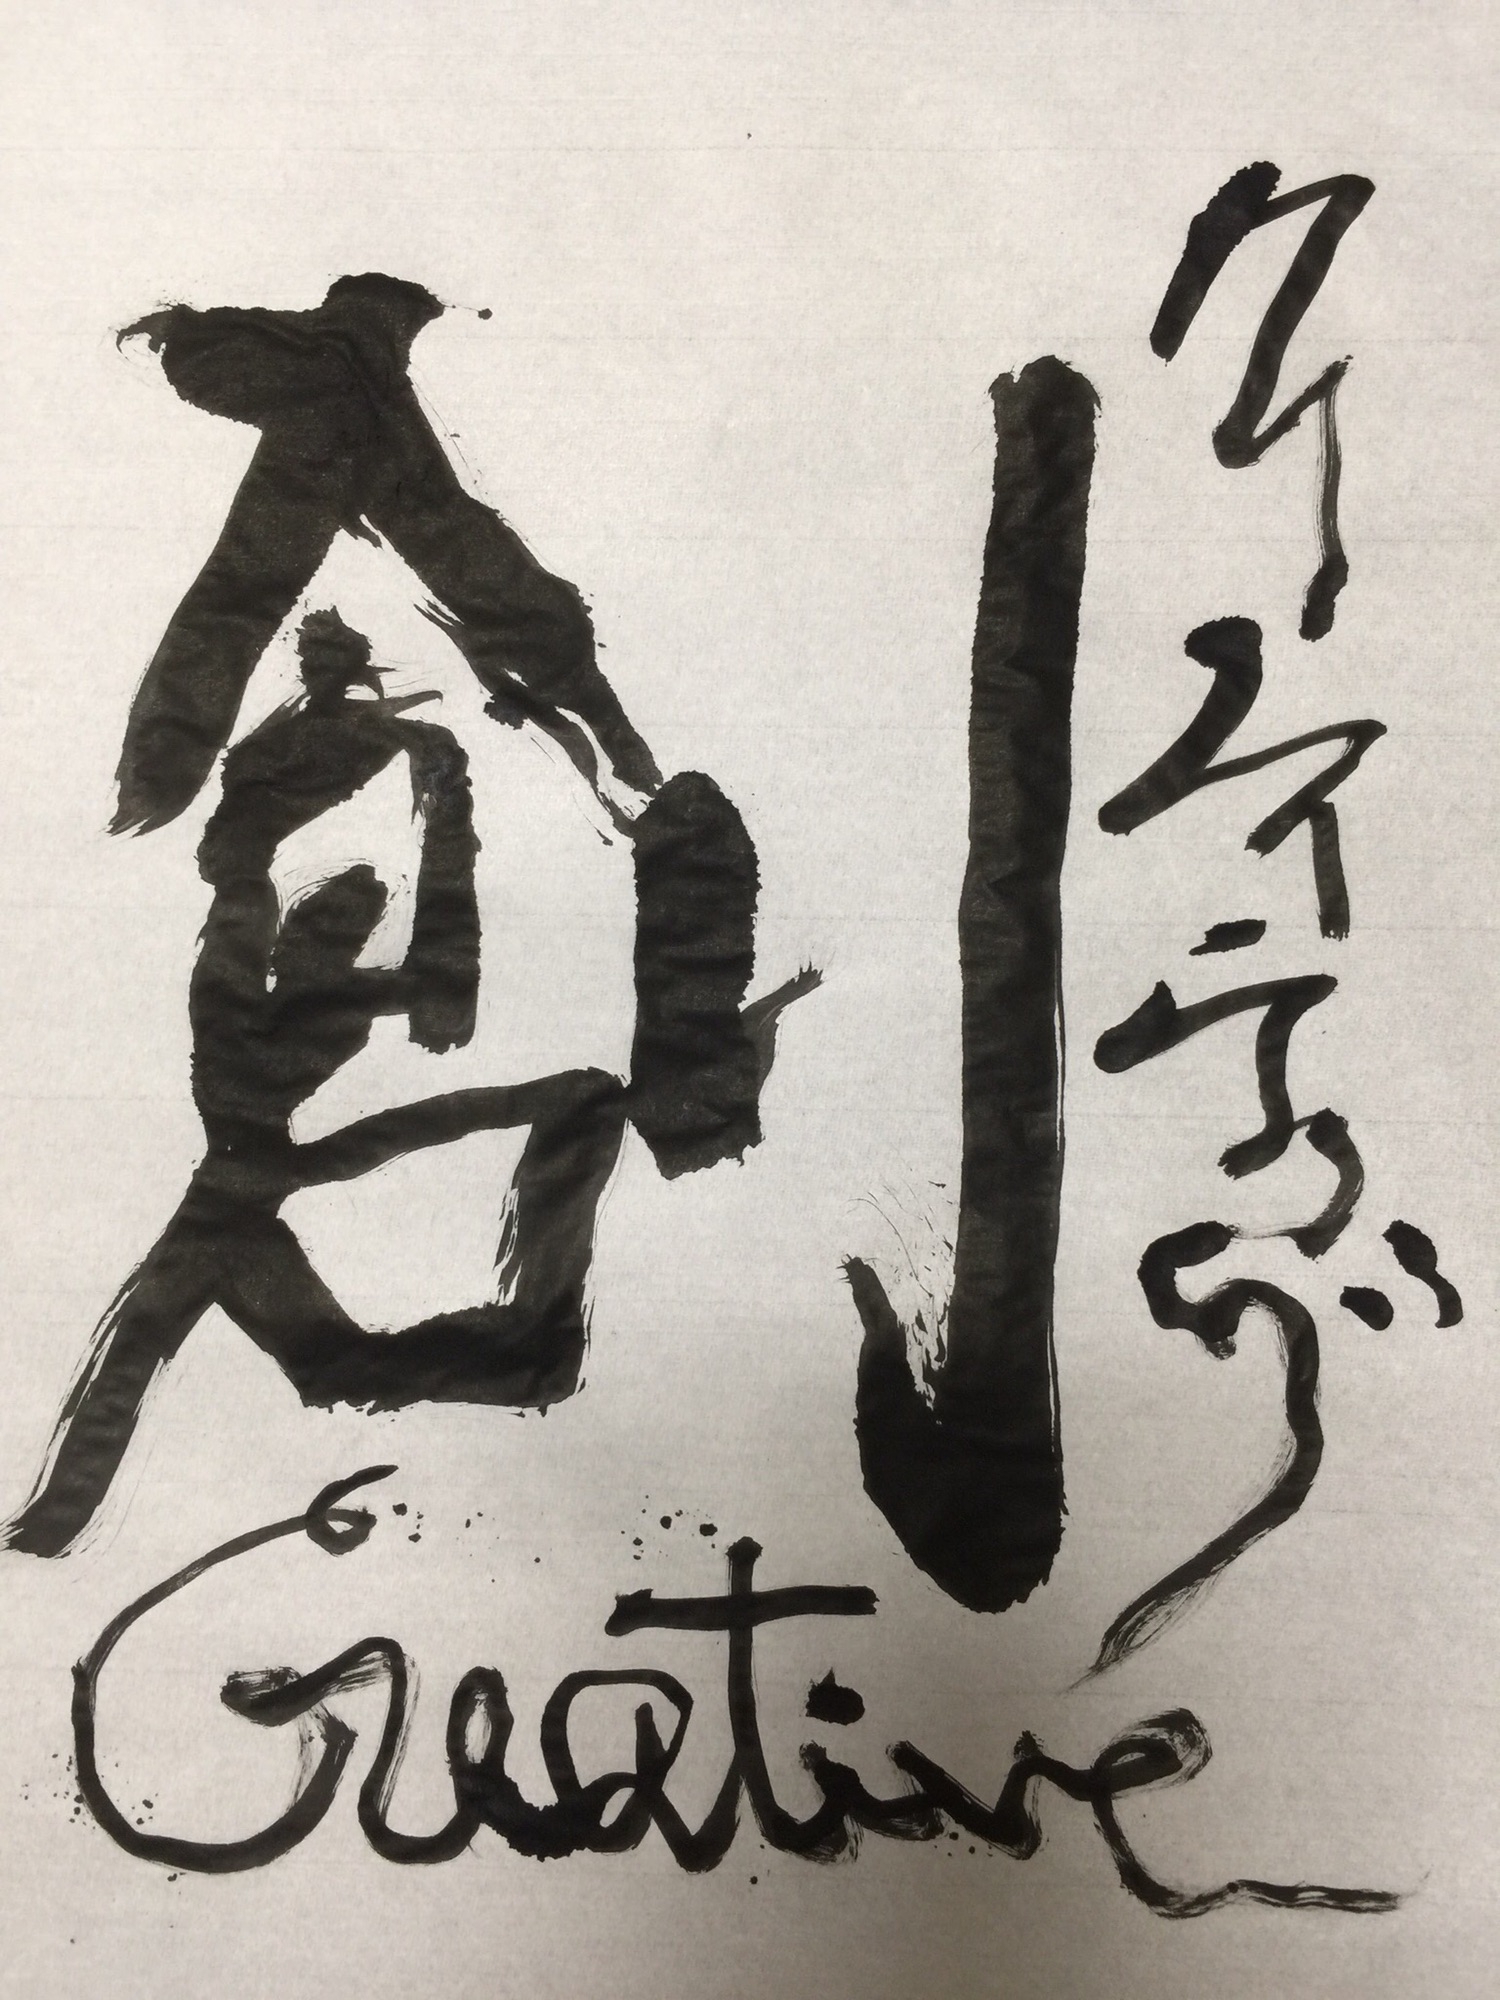 クリエイティブ
創
Creative